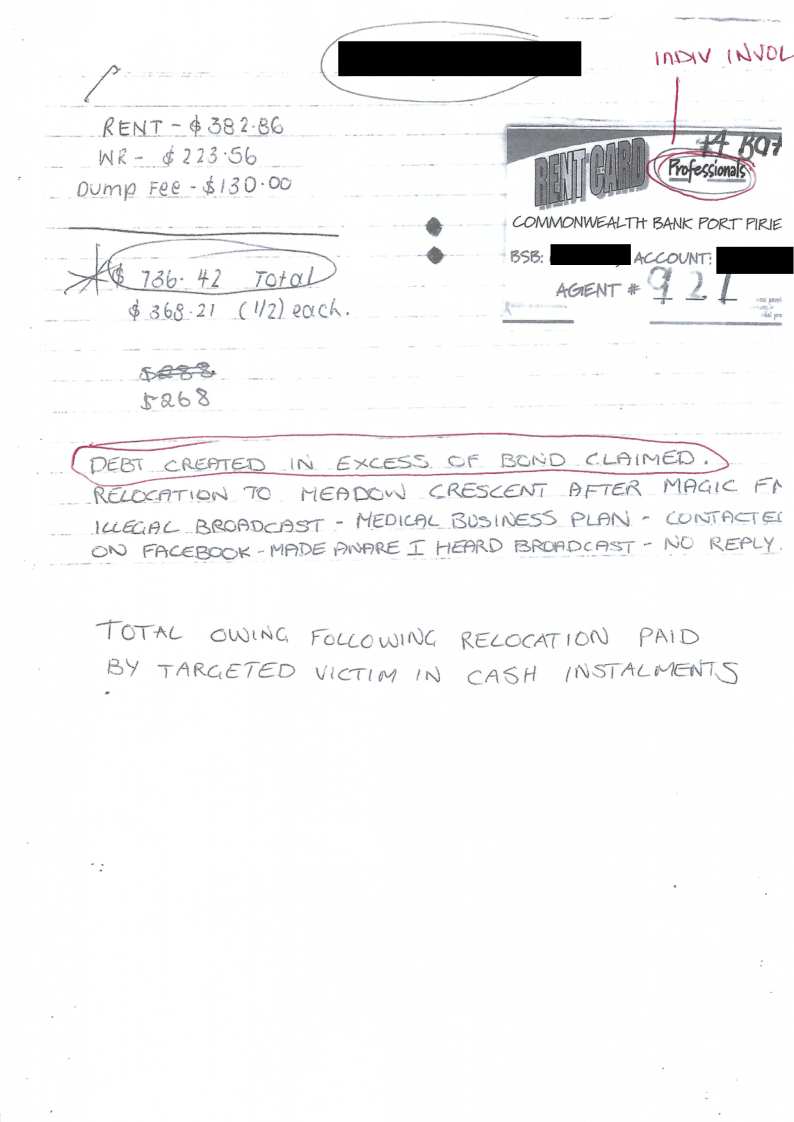 INDIV INVOL
RENT - $382.86
WR - $223.56
Dump Fee - $130.00
$736.42 Total
$368.21 (1/2) each.
$268
RENT CARD
Professionals
COMMONWEALTH BANK PORT PIRIE
BSB: ACCOUNT:
AGENT # 921
DEBT CREATED IN EXCESS OF BOND CLAIMED.
RELOCATION TO MEADOW CRESCENT AFTER MAGIC FM
ILLEGAL BROADCAST - MEDICAL BUSINESS PLAN - CONTACTED
ON FACEBOOK - MADE AWARE I HEARD BROADCAST - NO REPLY.
TOTAL OWING FOLLOWING RELOCATION PAID
BY TARGETED VICTIM IN CASH INSTALMENTS